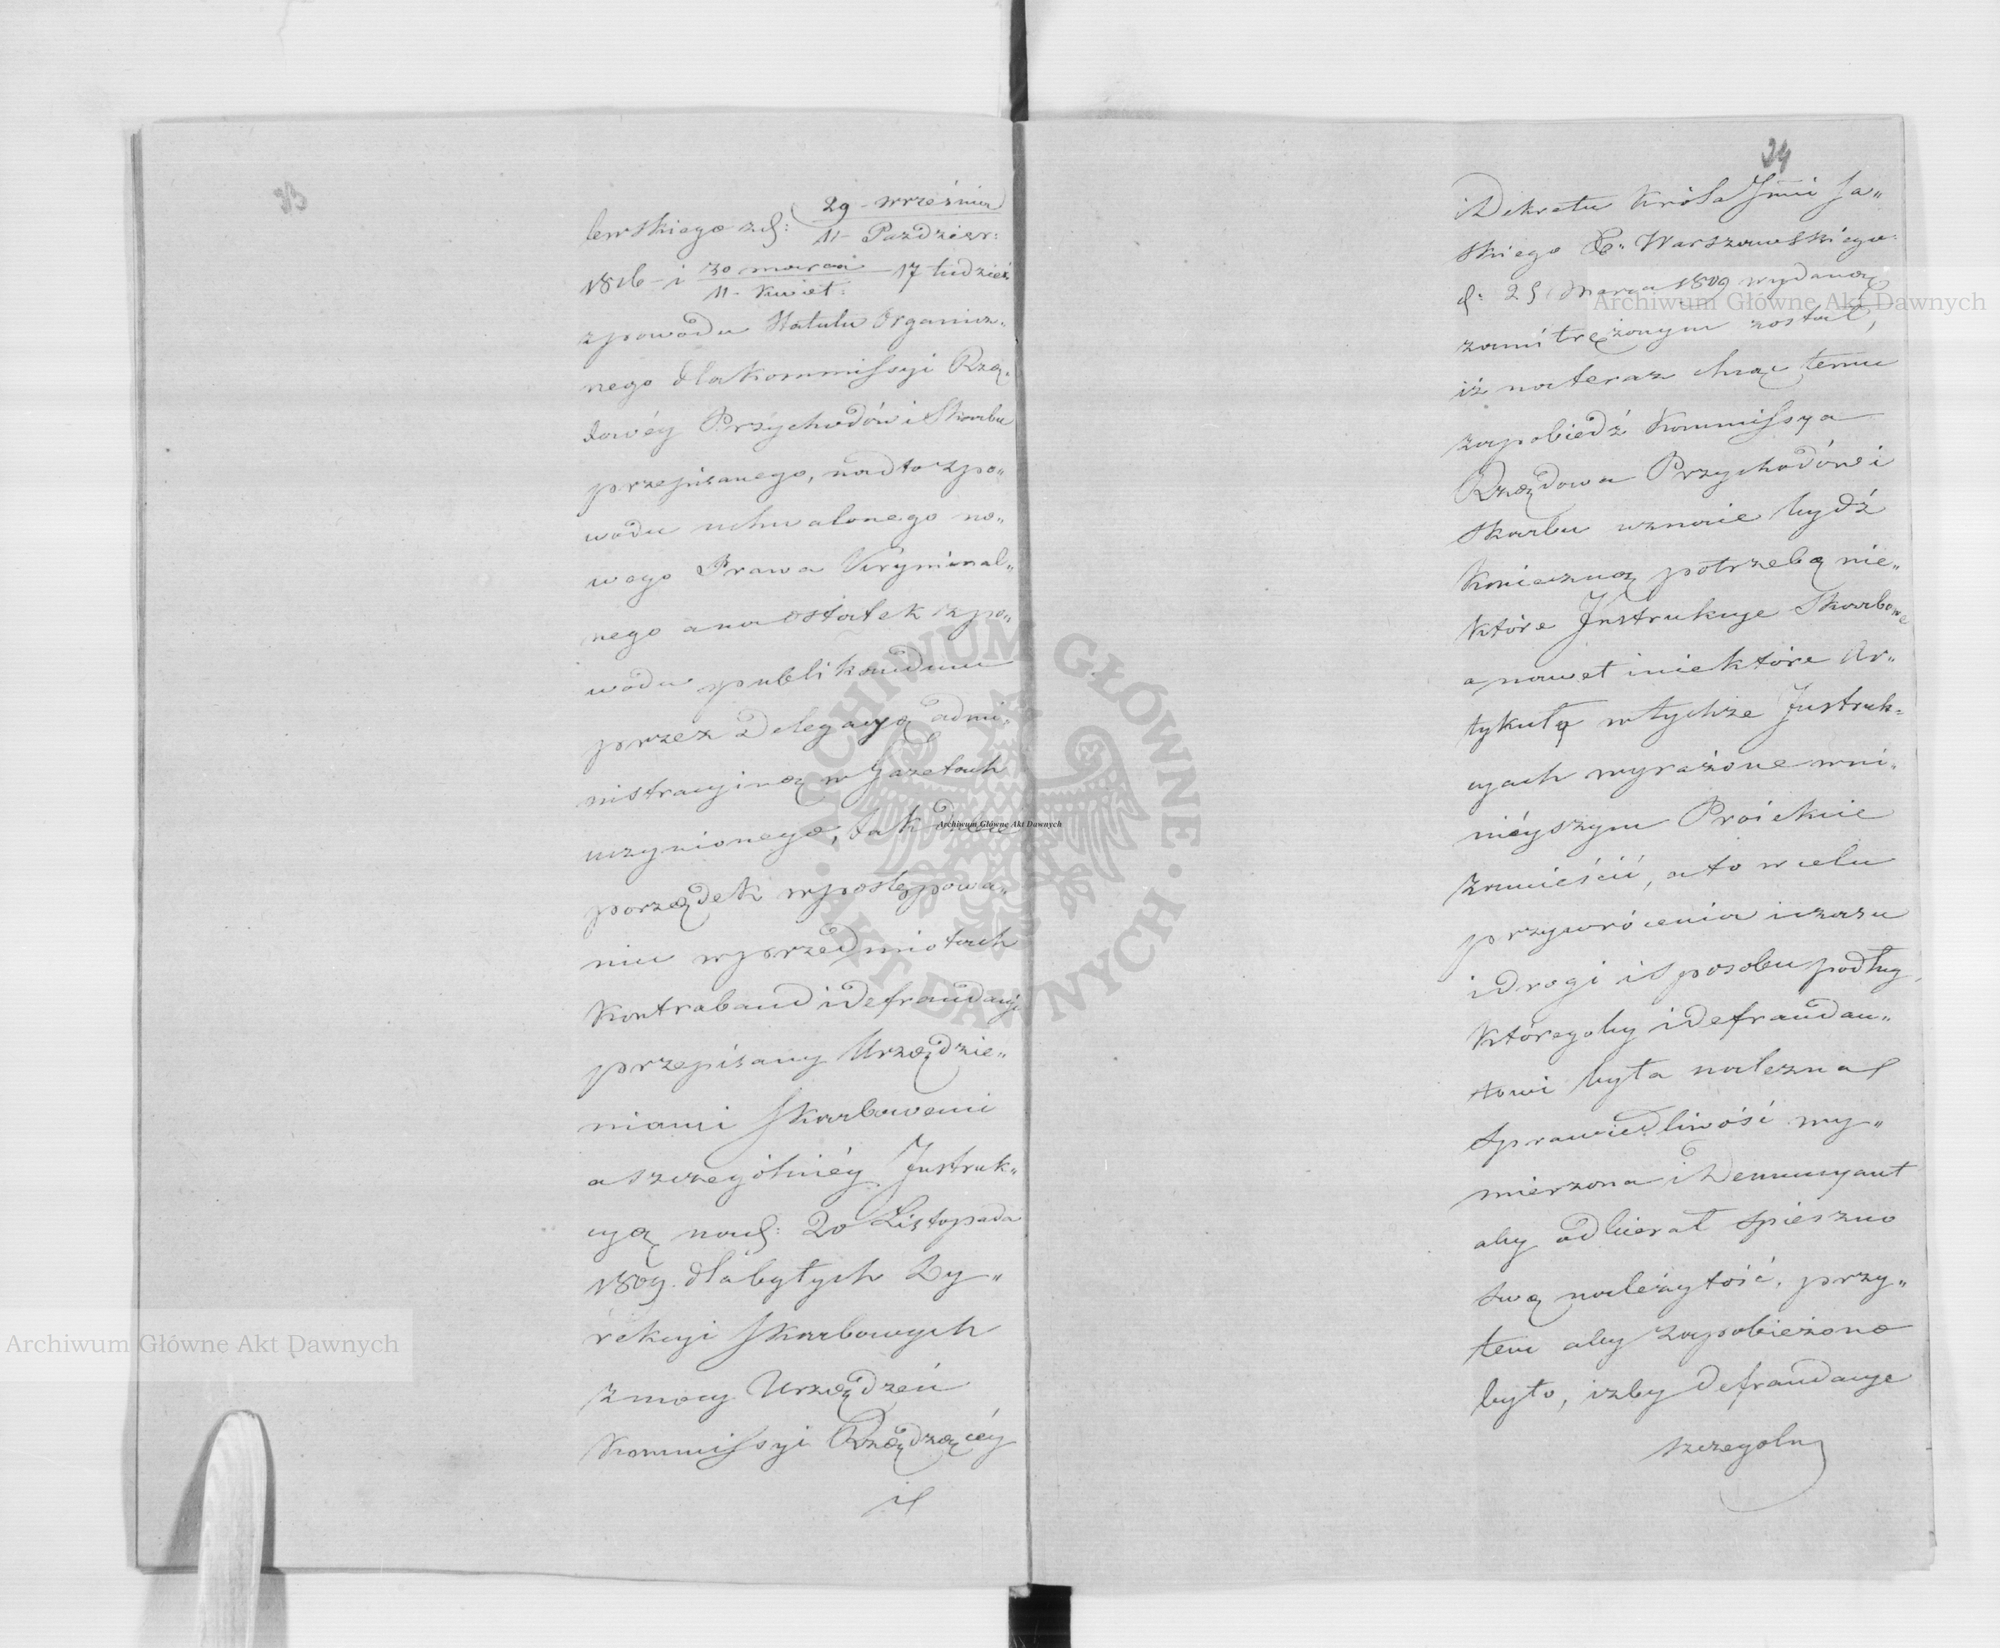 29 września
lewskiego zd: 11 Paździer:
1816 i 30 marca 17 tudzież
11 Kwiet:
z powodu Statutu Organicz„
nego dla Kommissyi Rzą„
dowéy Przychodów i Skarbu
przepisanego, nadto z po„
wodu uchwalonego no„
wego Prawa Kryminal„
nego a na ostatek z po„
wodu publikandum
przez Delegacyą admi„
nistracyiną w Gazetach
uczynionego, tak
porządek w postępowa„
niu w przedmiotach
Kontraband i defraudacyi
przepisany Urządze„
niami Skarbowemi
a szczególniéy Instruk„
cyą na d: 20 Listopada
1809. dla byłych Dy„
rekcyi Skarbowych
z mocy Urządzeń
Kommissyi Rządzącéy
i
24
i Dekretu Króla Jmci Sa„
skiego X. Warszawskiego
d: 25 Marca 1809 wydaną
zamitrężonym został,
iż na teraz chcąc temu
zapobiedź Kommissya
Rządowa Przychodów i
Skarbu uznaie bydź
konieczną potrzebą nie„
które Instrukcye Skarbowe
a nawet i niektóre Ar„
tykuły w tychże Instruk„
cyach wyrażone w ni„
niéyszym Proiekcie
zamieścić, a to w celu
przywrócenia i czasu
i drogi i sposobu podług
któregoby i defraudan„
towi była należna
Sprawiedliwość wy„
mierzona i Denuncyant
aby odbierał spieszno
swą należytość, przy„
tem aby zapobieżono
było, iżby defraudacye
szczególn
Archiwum Główne Akt Dawnych
Archiwum Główne Akt Dawnych
Archiwum Główne Akt Dawnych
ARCHIWUM GŁÓWNE AKT DAWNYCH